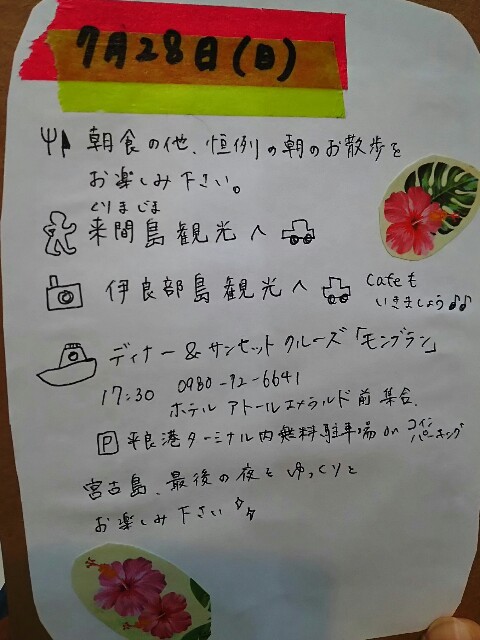 7月28日(日)
朝食の他、恒例の朝のお散歩を
お楽しみ下さい。
くりまじま
来間島観光へ
伊良部島観光へ Cafeも
いきましょう♪♪
ディナー&サンセットクルーズ「モングラン」
17:30 0980-72-6641
ホテルアトールエメラルド前集合.
P 平良港ターミナル内無料駐車場 or コインパーキング
宮古島、最後の夜をゆっくりと
お楽しみ下さい